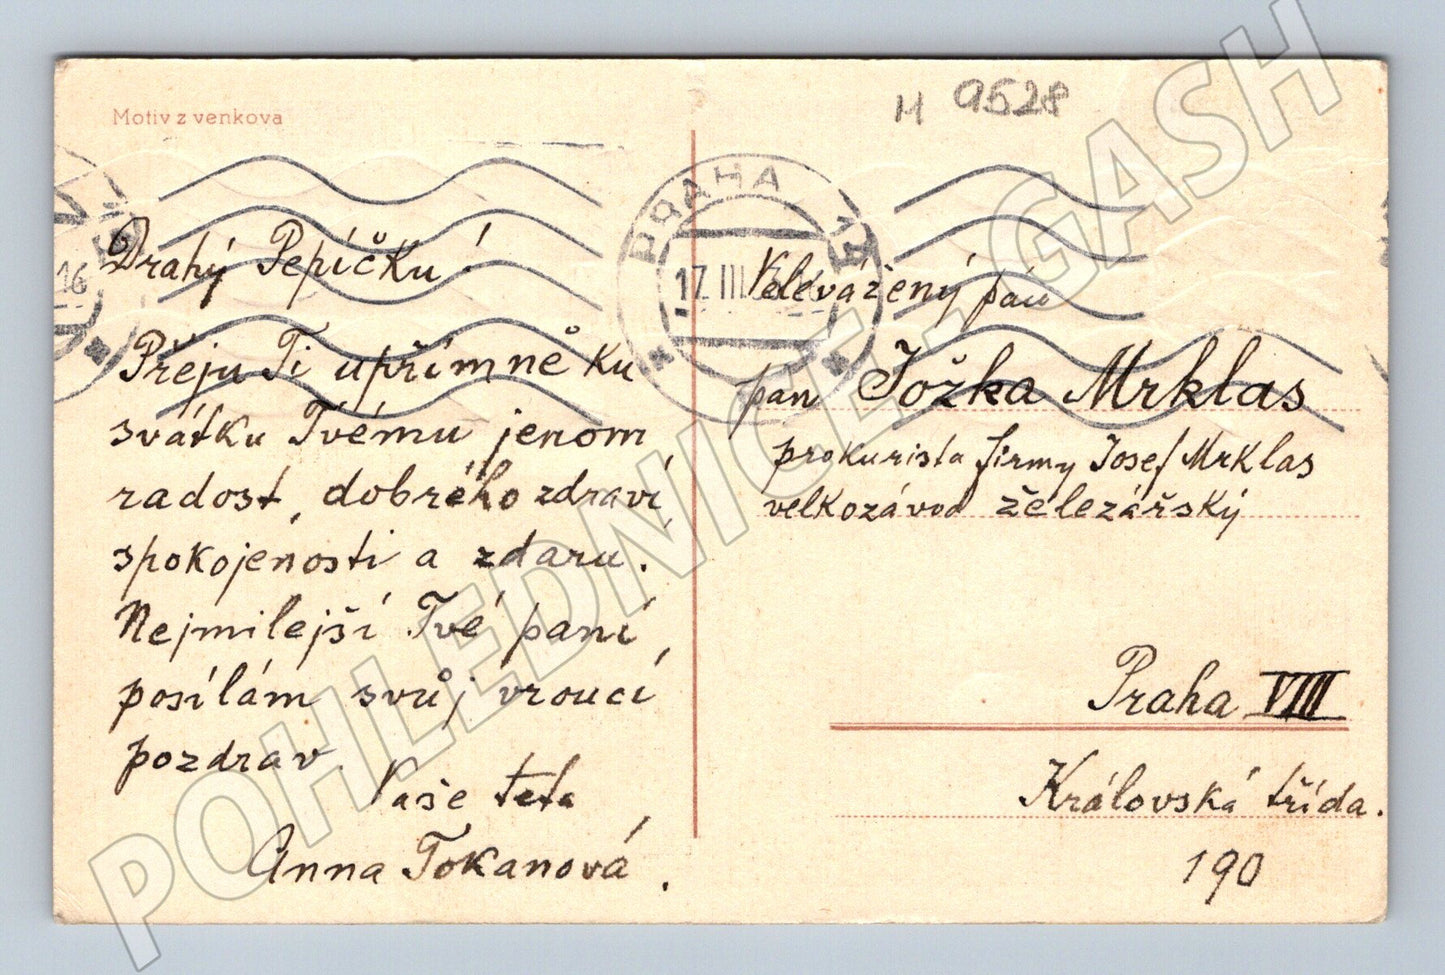 Motiv z venkova
H 9528
PRAHA 13
17. III.
16
Drahý Pepíčku!
Přeju Ti upřímně ku
svátku Tvému jenom
radost, dobrého zdraví,
spokojenosti a zdaru.
Nejmilejší Tvé paní,
posílám svůj vroucí
pozdrav.
Vaše teta
Anna Tokanová.
Velevážený pán
pan Jožka Mrklas
prokurista firmy Josef Mrklas
velkozávod železářský
Praha VIII
Královská třída.
190
POHLEDNICE GASH